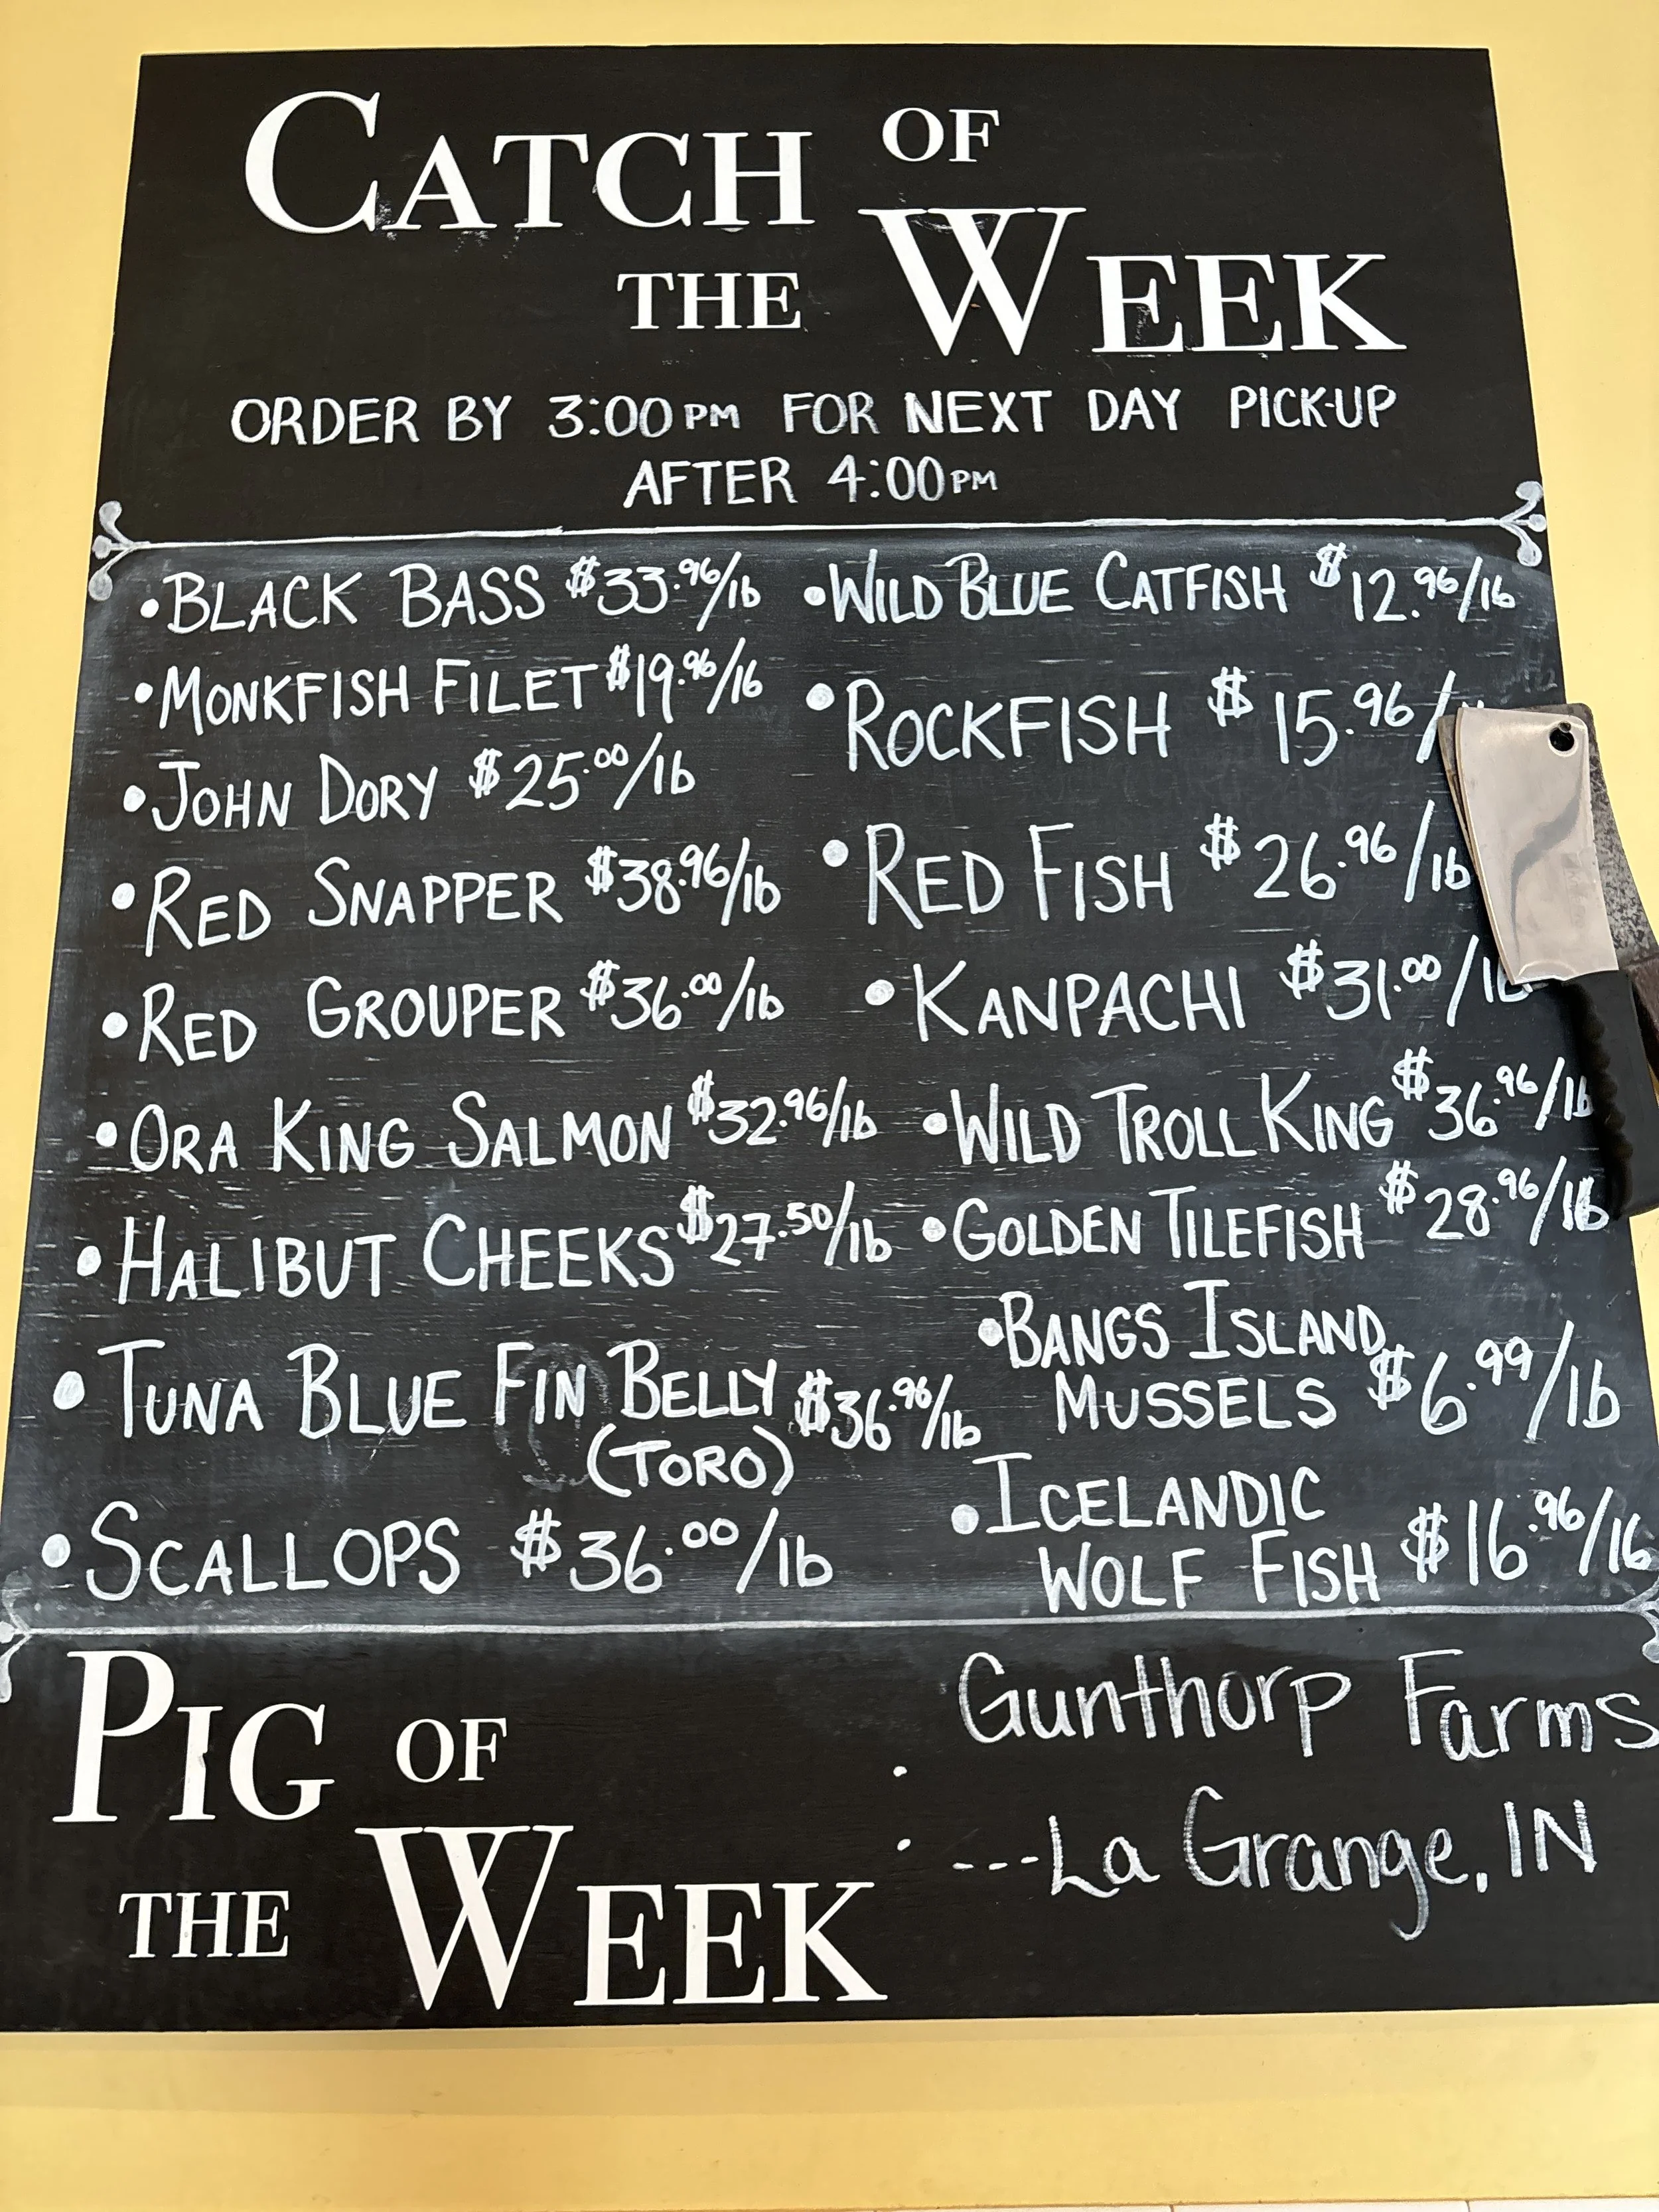 CATCH OF
THE WEEK
ORDER BY 3:00PM FOR NEXT DAY PICK-UP
AFTER 4:00PM
•BLACK BASS $33.96/lb
•MONKFISH FILET $19.96/lb
•JOHN DORY $25.00/lb
•RED SNAPPER $38.96/lb
•RED GROUPER $36.00/lb
•ORA KING SALMON $32.96/lb
•HALIBUT CHEEKS $27.50/lb
•TUNA BLUE FIN BELLY $36.96/lb
(TORO)
•SCALLOPS $36.00/lb
•WILD BLUE CATFISH $12.96/lb
•ROCKFISH $15.96/
•RED FISH $26.96/lb
•KANPACHI $31.00/lb
•WILD TROLL KING $36.96/lb
•GOLDEN TILEFISH $28.96/lb
•BANGS ISLAND
MUSSELS $6.99/lb
•ICELANDIC
WOLF FISH $16.96/lb
PIG OF
THE WEEK
: Gunthorp Farms
---La Grange, IN